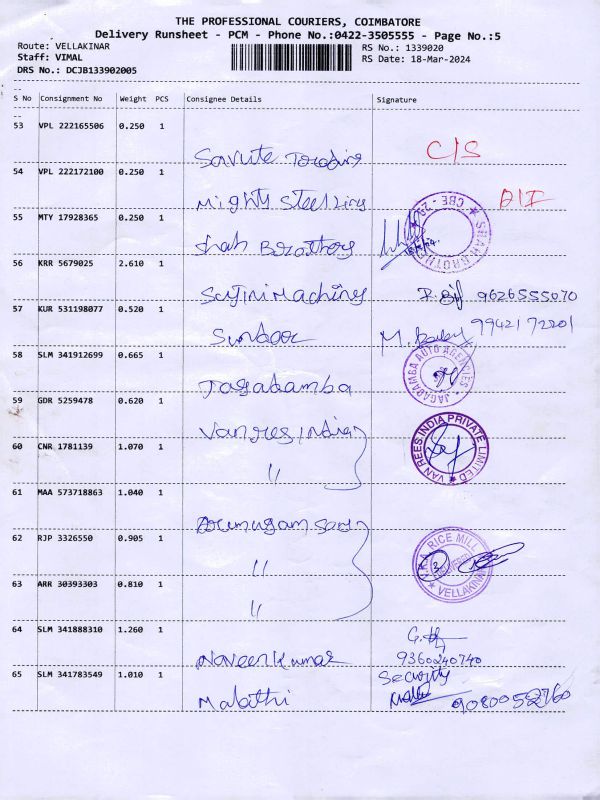 THE PROFESSIONAL COURIERS, COIMBATORE
Delivery Runsheet - PCM - Phone No.:0422-3505555 - Page No.:5
Route: VELLAKINAR RS No.: 1339020
Staff: VIMAL RS Date: 18-Mar-2024
DRS No.: DCJB133902005
S No Consignment No Weight PCS Consignee Details Signature
53 VPL 222165506 0.250 1
C/S
54 VPL 222172100 0.250 1
Mighty Steel
55 MTY 17928365 0.250 1
Shah Borothers
56 KRR 5679025 2.610 1
Machines 9626555070
57 KUR 531198077 0.520 1
Sundoor M. 9942172201
58 SLM 341912699 0.665 1
Jagadamba JAGADAMBA AUTO AGENCIES
59 GDR 5259478 0.620 1
Vanrees India VAN REES INDIA PRIVATE LIMITED
60 CNR 1781139 1.070 1
"
61 MAA 573718863 1.040 1
62 RJP 3326550 0.905 1
" RICE MILL VELLAKINAR
63 ARR 30393303 0.810 1
"
64 SLM 341888310 1.260 1
Naveen Kumar 9360240740
65 SLM 341783549 1.010 1
Security
Malathi 9080052760